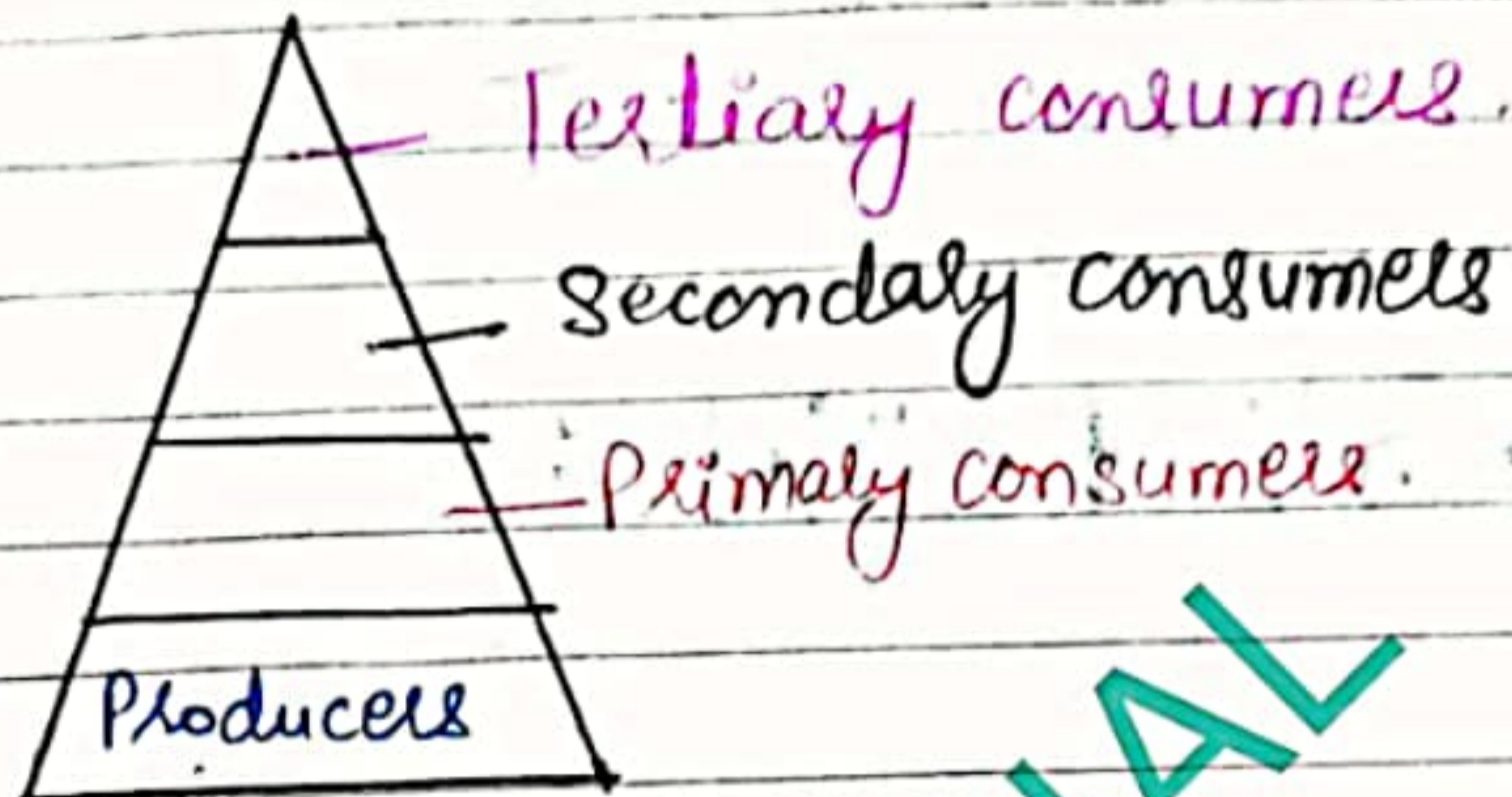 Tertiary consumers.
Secondary consumers
Primary consumers.
Producers
AL